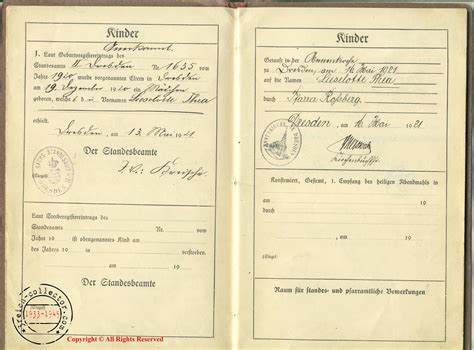 Kinder
Anerkannt
1. Laut Geburtsregistereintrags des
Standesamts II Dresden Nr. 1635 vom
Jahre 1920 wurde vorgenannten Eltern in Dresden
am 19. Dezember 1920 ein Mädchen
geboren, welches d Vornamen Lieselotte Thea
erhielt.
Dresden, am 13. Mai 1921
Der Standesbeamte
Laut Sterberegistereintrags des
Standesamts Nr. vom
Jahre 19 ist obengenanntes Kind am
des Jahres 19 in verstorben.
am 19
Der Standesbeamte
reich-collector.com
1933-1945
Copyright © All Rights Reserved
Kinder
Getauft in der Annenkirche
zu Dresden, am 16. Mai 1921
auf die Namen Lieselotte Thea,
durch Pfarrer Roßberg.
Dresden, am 16. Mai 1921
Konfirmiert, Gefirmt, 1. Empfang des heiligen Abendmahls in
am 19
durch
, am 19
Raum für standes- und pfarramtliche Bemerkungen